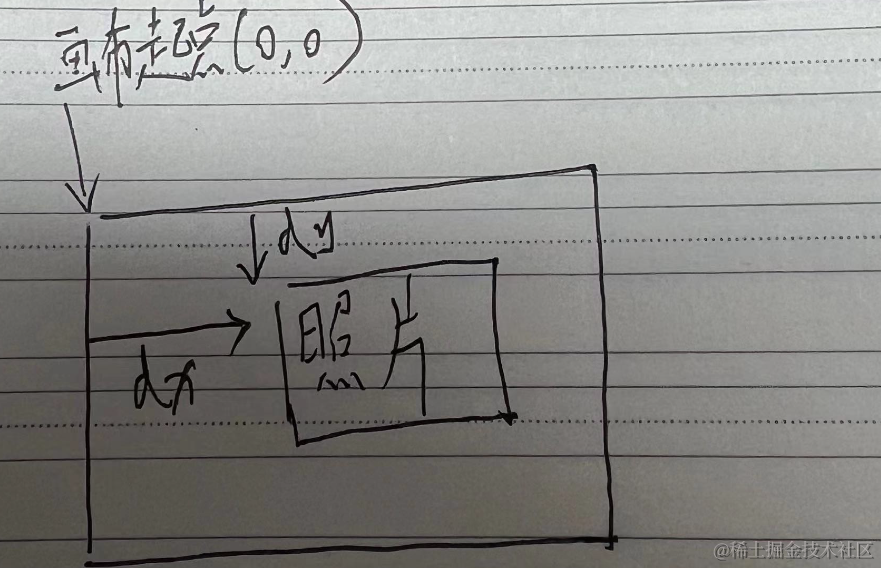 画布起点(0,0)
dy
照片
dx
@稀土掘金技术社区